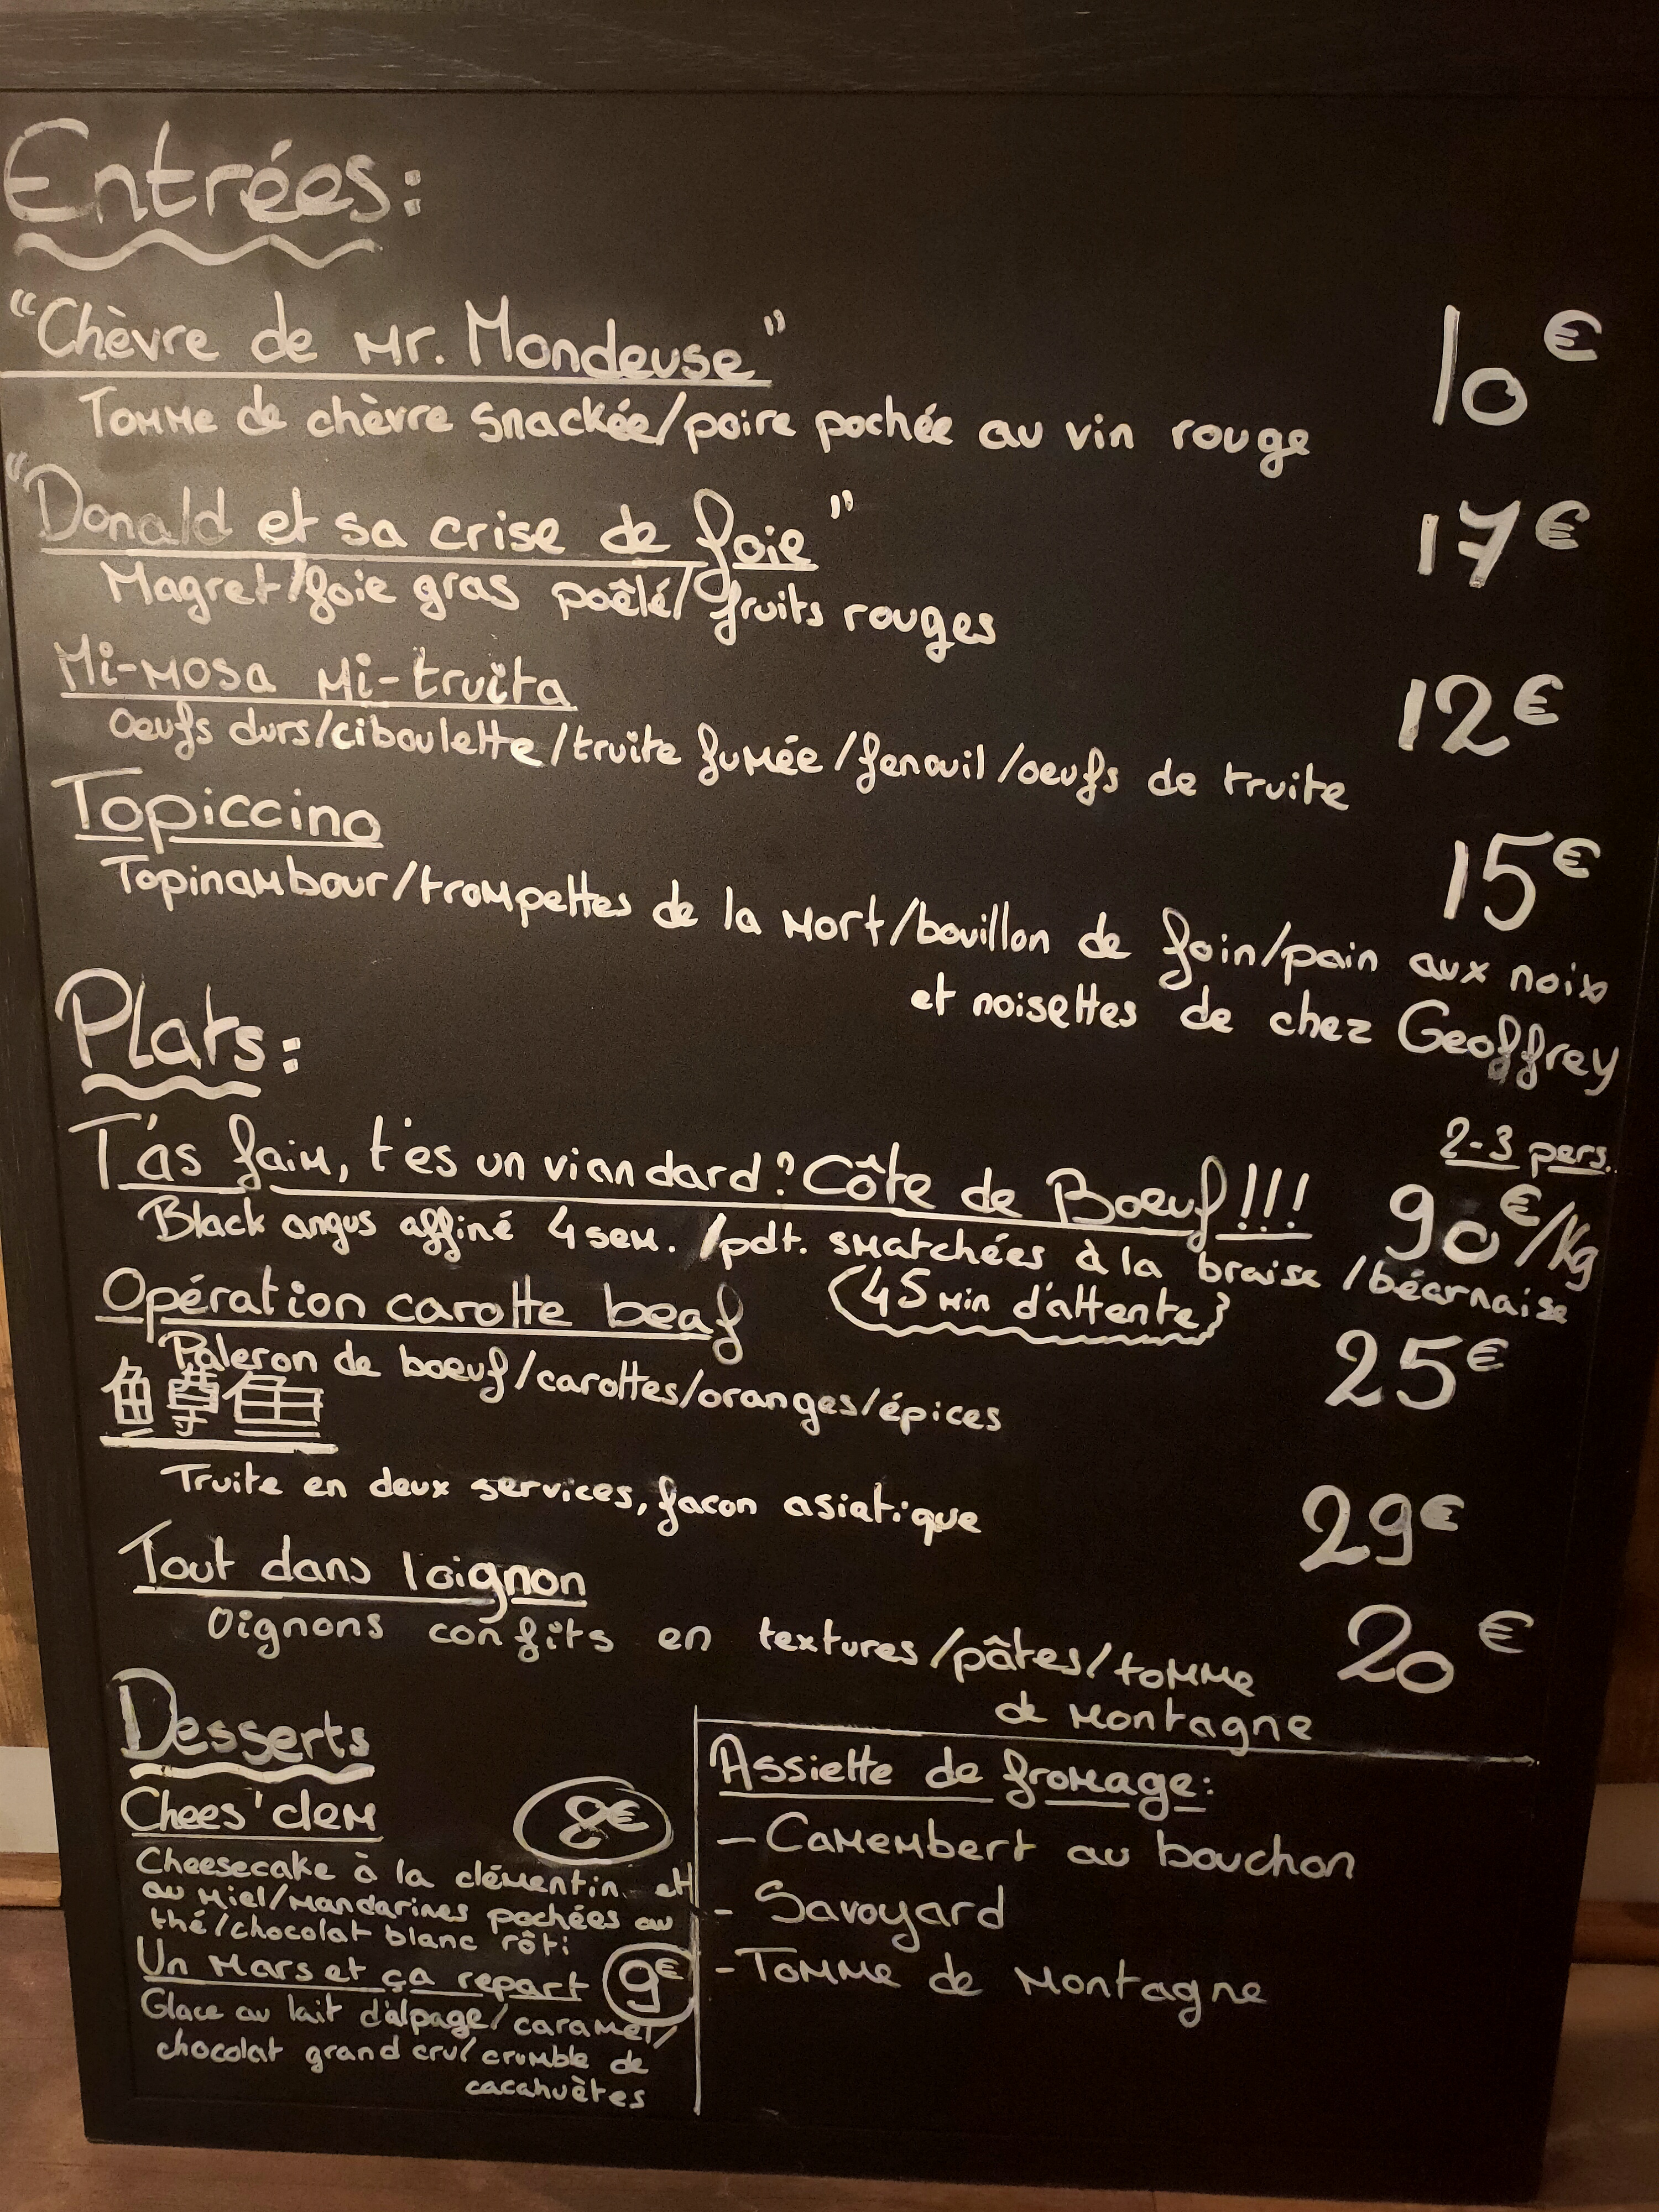 Entrées:
"Chèvre de Mr. Mondeuse"
10€
Tomme de chèvre snackée/poire pochée au vin rouge
"Donald et sa crise de foie"
17€
Magret/foie gras poêlé/fruits rouges
Mi-mosa mi-truita
12€
Oeufs durs/ciboulette/truite fumée/fenouil/oeufs de truite
Topiccino
15€
Topinambour/trompettes de la mort/bouillon de foin/pain aux noix
et noisettes de chez Geoffrey
Plats:
2-3 pers.
T'as faim, t'es un viandard? Côte de Boeuf!!!
90€/Kg
Black angus affiné 4 sem. /pdt. smatchées à la braise /béarnaise
(45 min d'attente)
Opération carotte beaf
25€
Paleron de boeuf/carottes/oranges/épices
Truite en deux services, facon asiatique
29€
Tout dans l'oignon
20€
Oignons confits en textures/pâtes/tomme
de montagne
Desserts
Chees'clem
8€
Cheesecake à la clémentin et
au miel/mandarines pochées au
thé/chocolat blanc rôti
Un Mars et ça repart
9€
Glace au lait d'alpage/caramel/
chocolat grand cru/crumble de
cacahuètes
Assiette de fromage:
- Camembert au bouchon
- Savoyard
- Tomme de montagne